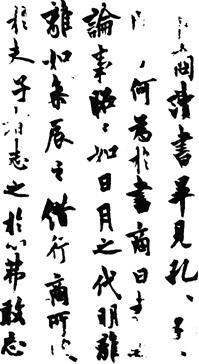 商讀書畢見孔〻子〻
何為於書商曰書
論事昭〻如日月之代明離
離如參辰之錯行商所
於夫子者志之於心弗敢忘